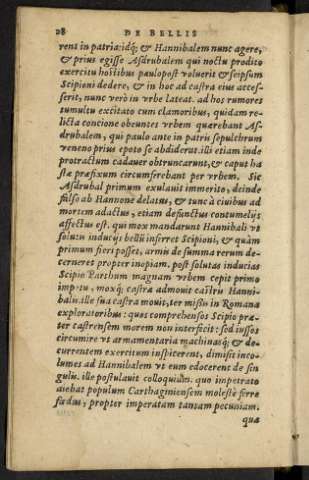 28 DE BELLIS
rent in patria: idq; & Hannibalem nunc agere,
& prius egisse Asdrubalem qui noctu prodito
exercitu hostibus paulopost voluerit & seipsum
Scipioni dedere, & in hoc ad castra eius acces-
serit, nunc verò in vrbe lateat. ad hos rumores
tumultu excitato cum clamoribus, quidam re-
licta concione obeuntes vrbem quærebant As-
drubalem, qui paulo ante in patris sepulchrum
veneno prius epoto se abdiderat. illi etiam inde
protractum cadauer obtruncarunt, & caput ha
stæ præfixum circumferebant per vrbem. Sic
Asdrubal primum exulauit immerito, deinde
falso ab Hannone delatus, & tunc à ciuibus ad
mortem adactus, etiam defunctus contumelijs
affectus est. qui mox mandarunt Hannibali vt
solutis inducijs bellū inferret Scipioni, & quàm
primum fieri posset, armis de summa rerum de-
cerneret propter inopiam. post solutas inducias
Scipio Parthum magnam vrbem cepit primo
impetu, moxq; castra admouit castris Hanni-
balis. ille sua castra mouit, ter missis in Romana
exploratoribus: quos comprehensos Scipio præ-
ter castrensem morem non interficit: sed iussos
circumire vt armamentaria machinasq; & de-
currentem exercitum inspicerent, dimisit inco-
lumes ad Hannibalem vt eum edocerent de sin
gulis. ille postulauit colloquium. quo impetrato
aiebat populum Carthaginiensem molestè ferre
fœdus, propter imperatam tantam pecuniam.
qua